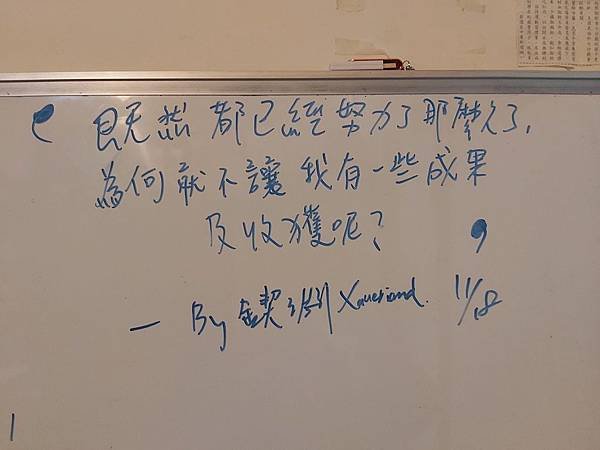 既然都已經努力了那麼久了,
為何就不讓我有一些成果
及收獲呢?
— By 鍥 11/18
1